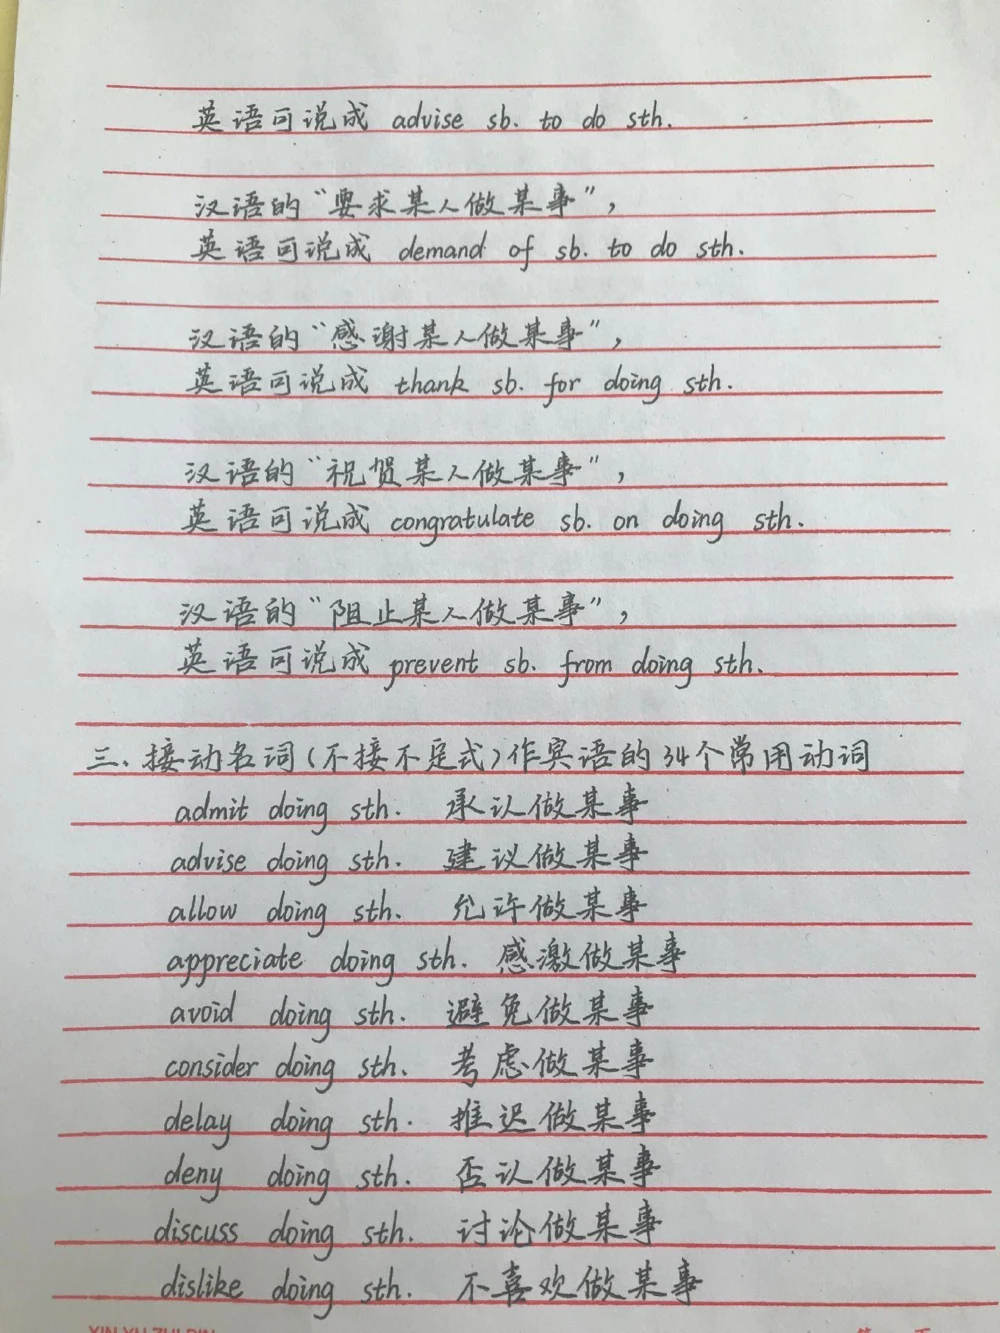 英语可说成 advise sb. to do sth.
汉语的“要求某人做某事”,
英语可说成 demand of sb. to do sth.
汉语的“感谢某人做某事”,
英语可说成 thank sb. for doing sth.
汉语的“祝贺某人做某事”,
英语可说成 congratulate sb. on doing sth.
汉语的“阻止某人做某事”,
英语可说成 prevent sb. from doing sth.
三、接动名词(不接不定式)作宾语的34个常用动词
admit doing sth. 承认做某事
advise doing sth. 建议做某事
allow doing sth. 允许做某事
appreciate doing sth. 感激做某事
avoid doing sth. 避免做某事
consider doing sth. 考虑做某事
delay doing sth. 推迟做某事
deny doing sth. 否认做某事
discuss doing sth. 讨论做某事
dislike doing sth. 不喜欢做某事